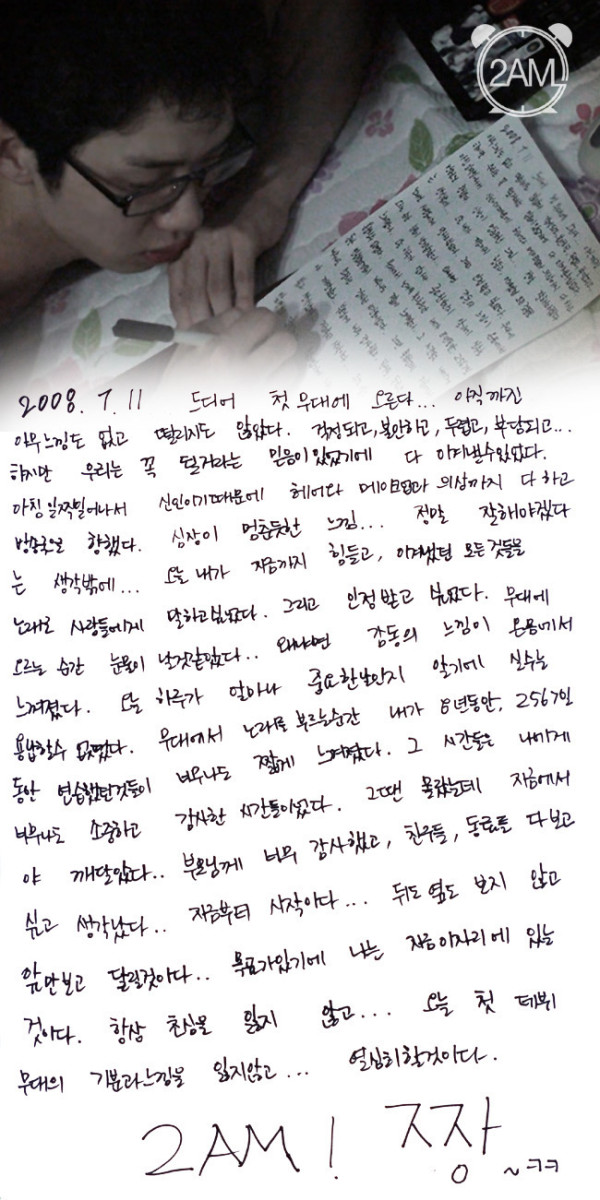 2AM
2008. 7. 11 드디어 첫 무대에 오른다... 아직까진
아무느낌도 없고 떨리지도 않았다. 걱정되고, 불안하고, 두렵고, 부담되고...
하지만 우리는 꼭 될거라는 믿음이 있었기에 다 이겨낼수있었다.
아침 일찍일어나서 신인이기때문에 헤어와 메이크업과 의상까지 다 하고
방송국으로 향했다. 심장이 멈춘듯한 느낌... 정말 잘해야겠다
는 생각밖에... 오늘 내가 지금까지 힘들고, 이겨냈던 모든것들을
노래로 사람들에게 말하고싶었다. 그리고 인정 받고 싶었다. 무대에
오르는 순간 눈물이 날것같았다.. 왜냐면 감동의 느낌이 온몸에서
느껴졌다. 오늘 하루가 얼마나 중요한날인지 알기에 실수는
용납할수 없었다. 무대에서 노래를 부르는순간 내가 8년동안, 2567일
동안 연습했던것들이 너무나도 짧게 느껴졌다. 그 시간들은 나에게
너무나도 소중하고 감사한 시간들이었다. 그땐 몰랐는데 지금에서
야 깨달았다.. 부모님께 너무 감사했고, 친구들, 동료들 다 보고
싶고 생각났다.. 지금부터 시작이다... 뒤도 옆도 보지 않고
앞만보고 달릴것이다.. 목표가있기에 나는 지금이자리에 있는
것이다. 항상 초심을 잃지 않고... 오늘 첫 데뷔
무대의 기분과느낌을 잃지않고... 열심히할것이다.
2AM! 짱
~ㅋㅋ